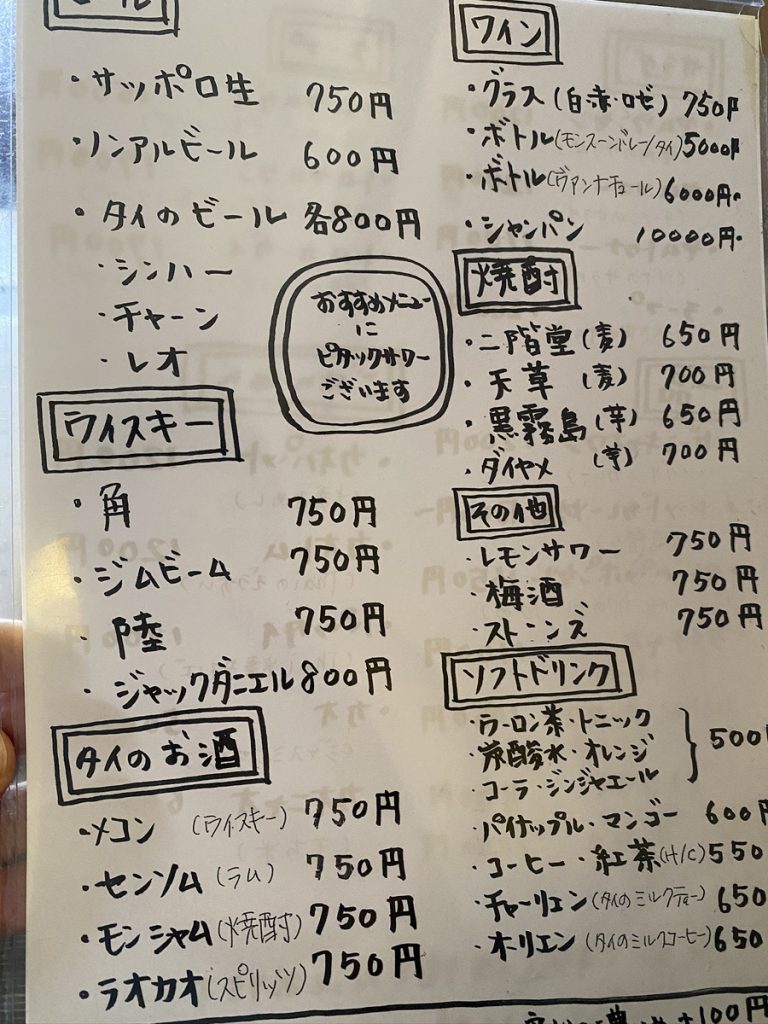 ビール
・サッポロ生 750円
・ノンアルビール 600円
・タイのビール 各800円
・シンハー
・チャーン
・レオ
おすすめメニュー
に
ピタックサワー
ございます
ウィスキー
・角 750円
・ジムビーム 750円
・陸 750円
・ジャックダニエル 800円
タイのお酒
・メコン (ウィスキー) 750円
・センソム (ラム) 750円
・モンシャム (焼酎) 750円
・ラオカオ (スピリッツ) 750円
ワイン
・グラス (白・赤・ロゼ) 750円
・ボトル (モンスーンバレー/タイ) 5000円
・ボトル (ヴァンナチュール) 6000円
・シャンパン 10000円
焼酎
・二階堂 (麦) 650円
・天草 (麦) 700円
・黒霧島 (芋) 650円
・ダイヤメ (芋) 700円
その他
・レモンサワー 750円
・梅酒 750円
・ストーンズ 750円
ソフトドリンク
・ウーロン茶・トニック
・炭酸水・オレンジ 500円
・コーラ・ジンジャエール
・パイナップル・マンゴー 600円
・コーヒー・紅茶 (H/C) 550
・チャーリェン (タイのミルクティー) 650
・オーリエン (タイのミルクコーヒー) 650
+100円